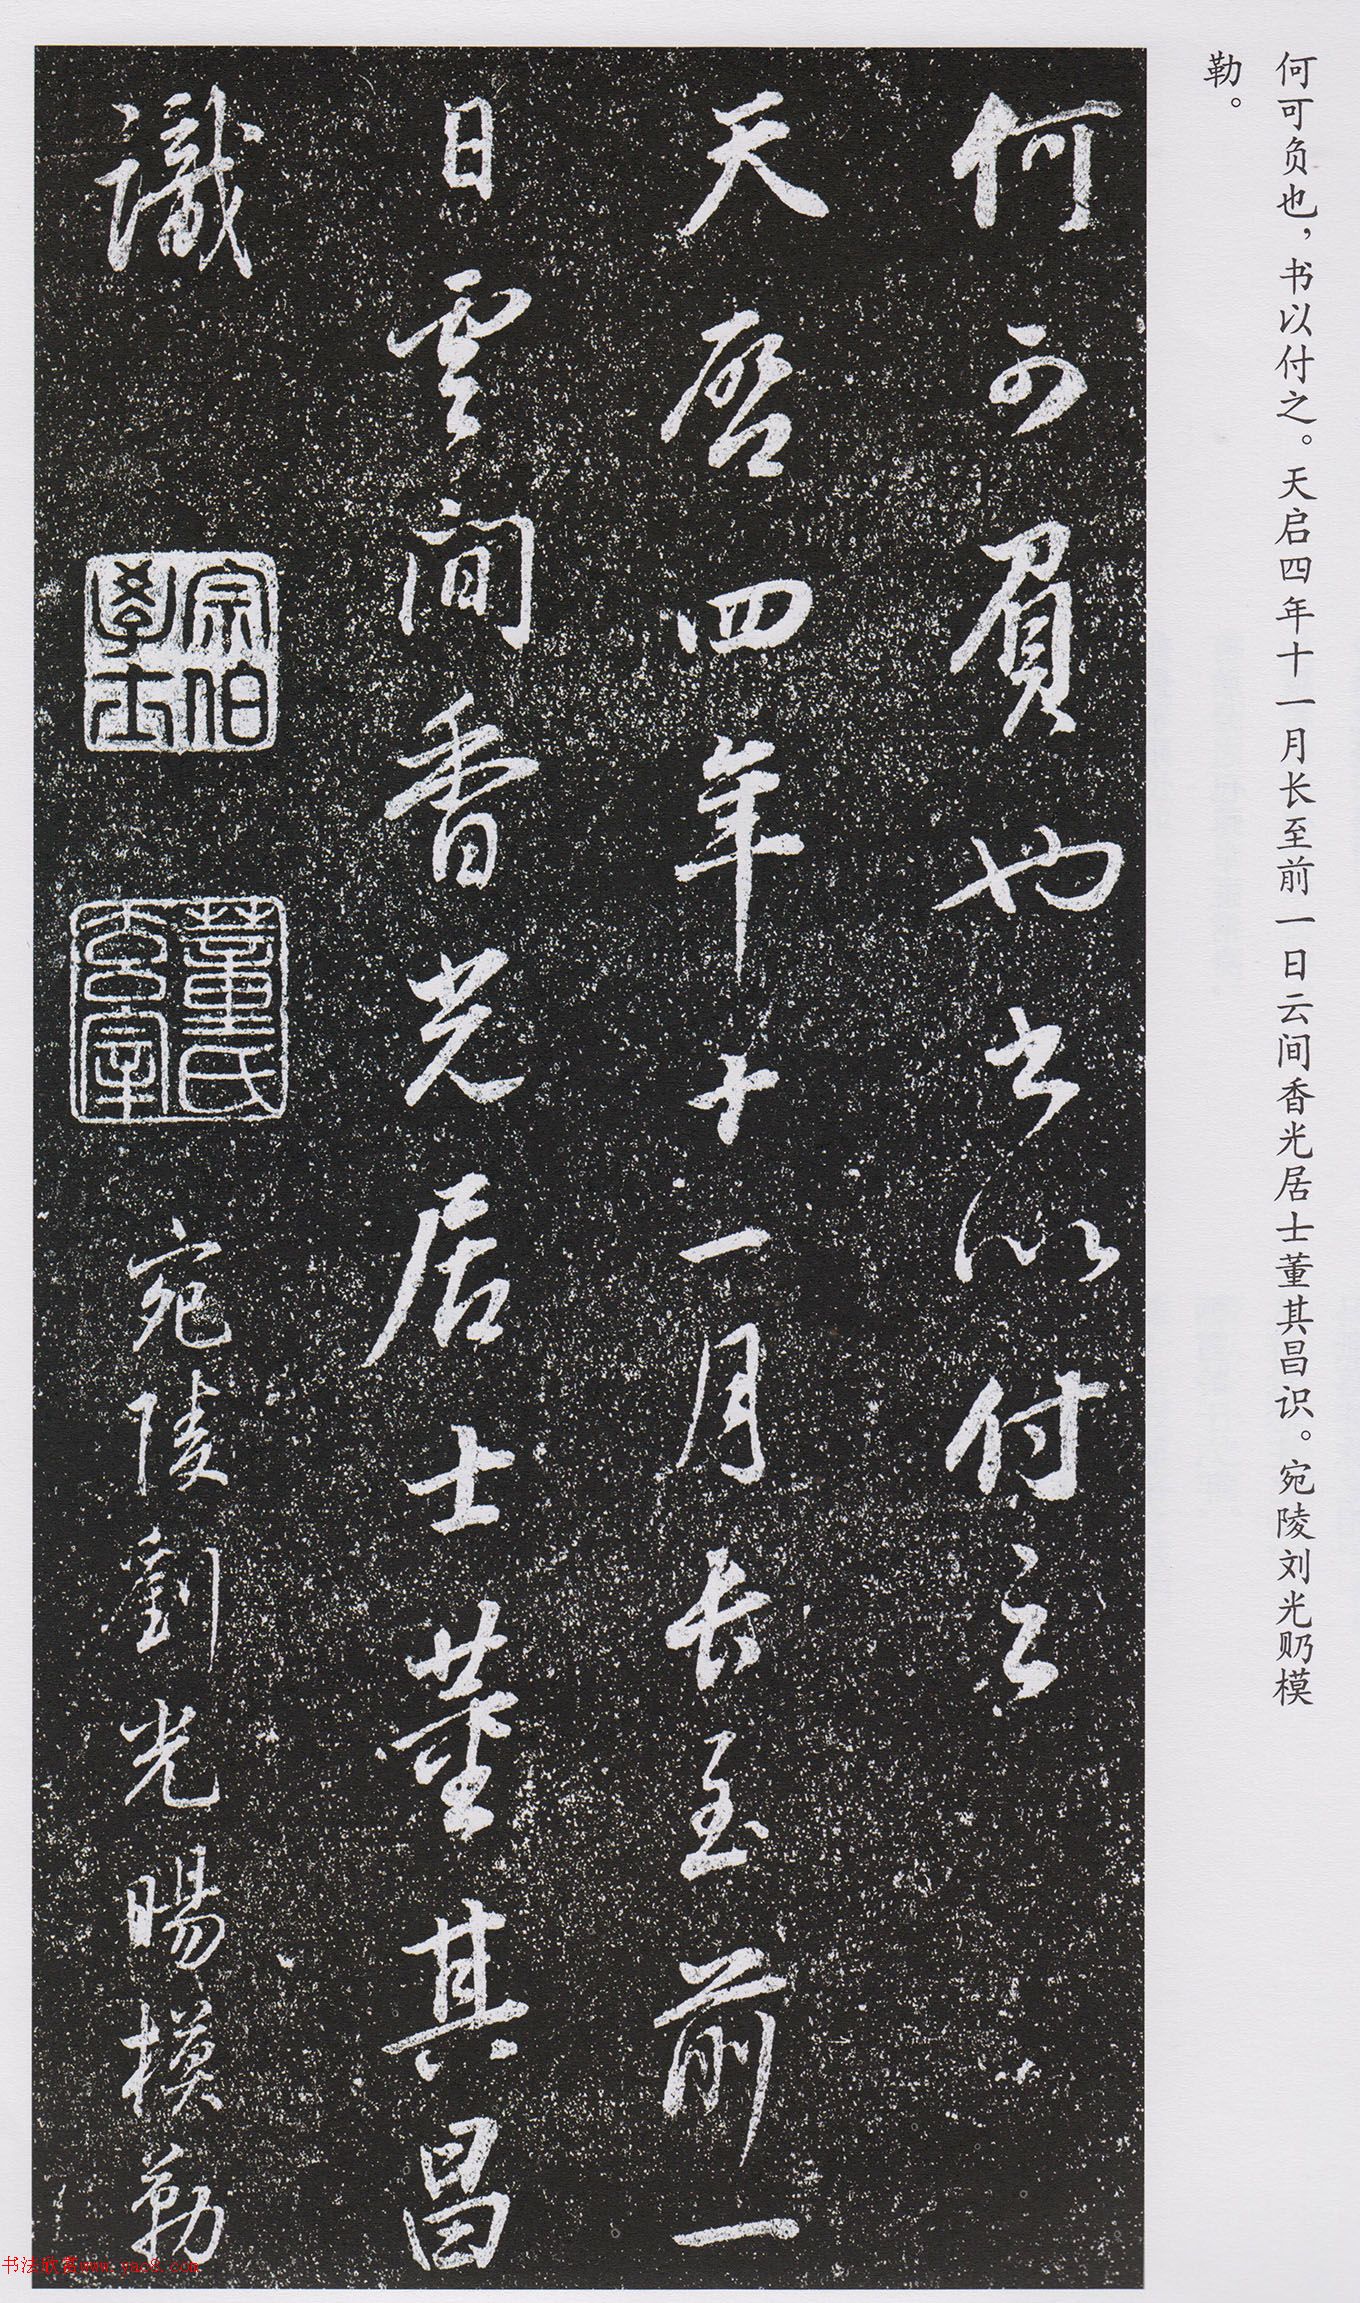 何可负也，书以付之。天启四年十一月长至前一日云间香光居士董其昌识。宛陵刘光旸模
勒。
何可負也書以付之
天啓四年十一月長至前一
日雲間香光居士董其昌
識
宗伯學士
董氏玄宰
宛陵劉光暘模勒
书法欣赏www.yac8.com